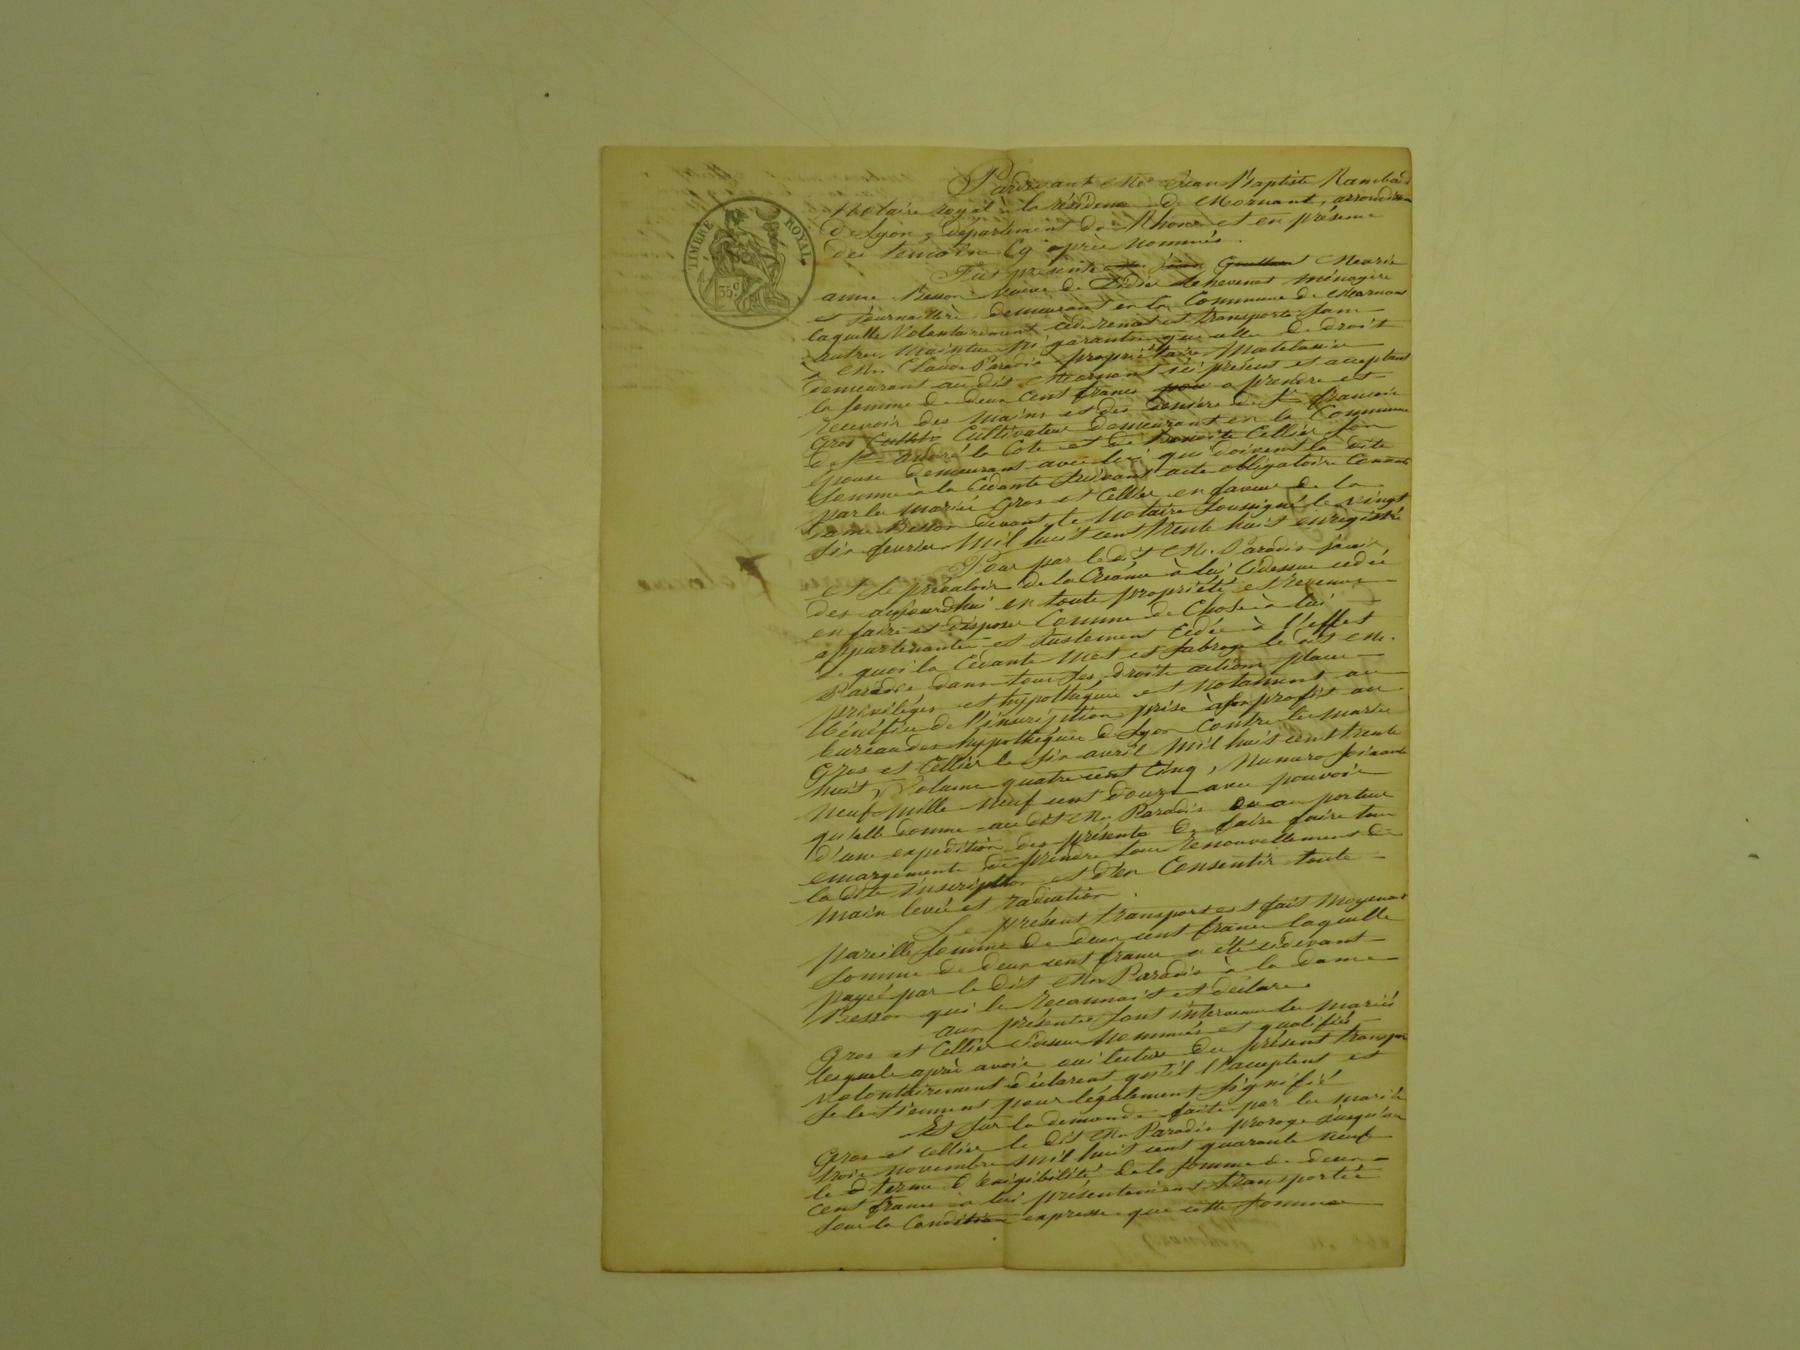 TIMBRE ROYAL
35 c
Pardevant Me Jean Baptiste Rambaud
Notaire royal à la résidence de Mornant, arrondissem
de Lyon, département du Rhône et en présence
des témoins cy après nommés.
Fut présente Marie
anne Besson veuve de Didier Thevenet ménagère
et journalière demeurant en la Commune de Mornant
laquelle volontairement cède remet et transporte sans
autre maintenue ni garantie que celle de droit
à Mr Claude Paradis propriétaire Matelassier
demeurant au dit Mornant ici présent et acceptant
la somme de deux cent francs a prendre et
recevoir des mains et des deniers de Sr françois
Gros Cultivateur demeurant en la Commune
de St André la Cote et de Benoite Cellier son
épouse demeurant avec lui qui doivent la dite
somme à la Cédante suivant acte obligatoire Consenti
par les mariés Gros et Cellier en faveur de la
dame Besson devant le Notaire soussigné le vingt
six fevrier mil huit cent trente huit enregistré
Pour par le dit Mr. Paradis jouir
et se prévaloir de la Créance à lui Cidessus cédée
des aujourdhui en toute propriété et revenus
en faire et disposer Comme de Chose à lui
appartenante et justement Cédée à l'effet
de quoi la Cédante met et subroge le dit Mr.
Paradis dans tous ses droits actions place
priviléges et hypothèques et notamment au
bénéfice de l'inscription prise à son profit au
bureau des hypothéques de Lyon Contre les mariés
Gros et Cellier le six avril mil huit cent trente
huit, Volume quatre cent Cinq, Numéro soixante
neuf mille neuf cent douze avec pouvoir
qu'elle donne au dit Mr Paradis ou au porteur
d'une expedition des présentes de faire faire tous
emargements de prendre tous renouvellement de
la dite inscription et d'en Consentir toute
main levée et radiation.
Le présent transport est fait moyenant
pareille somme de deux cent francs laquelle
somme de deux cent francs a été cidevant
payée par le dit Mr Paradis à la dame
Besson qui le reconnait et declare.
aux présentes sont intervenu les mariés
Gros et Cellier cidessus nommés et qualifiés
lesquels après avoir oui lecture du présent transpor
volontairement déclarent qu'il l'acceptent et
se le tiennent pour légalement signifié
Et sur la demande faite par les mariés
Gros et Cellier le dit Mr Paradis proroge jusqu'au
trois novembre mil huit cent quarante neuf
le terme d'éxigibilité de la somme de deux
cent francs à lui présentement transportée
sous la Condition expresse que cette somme